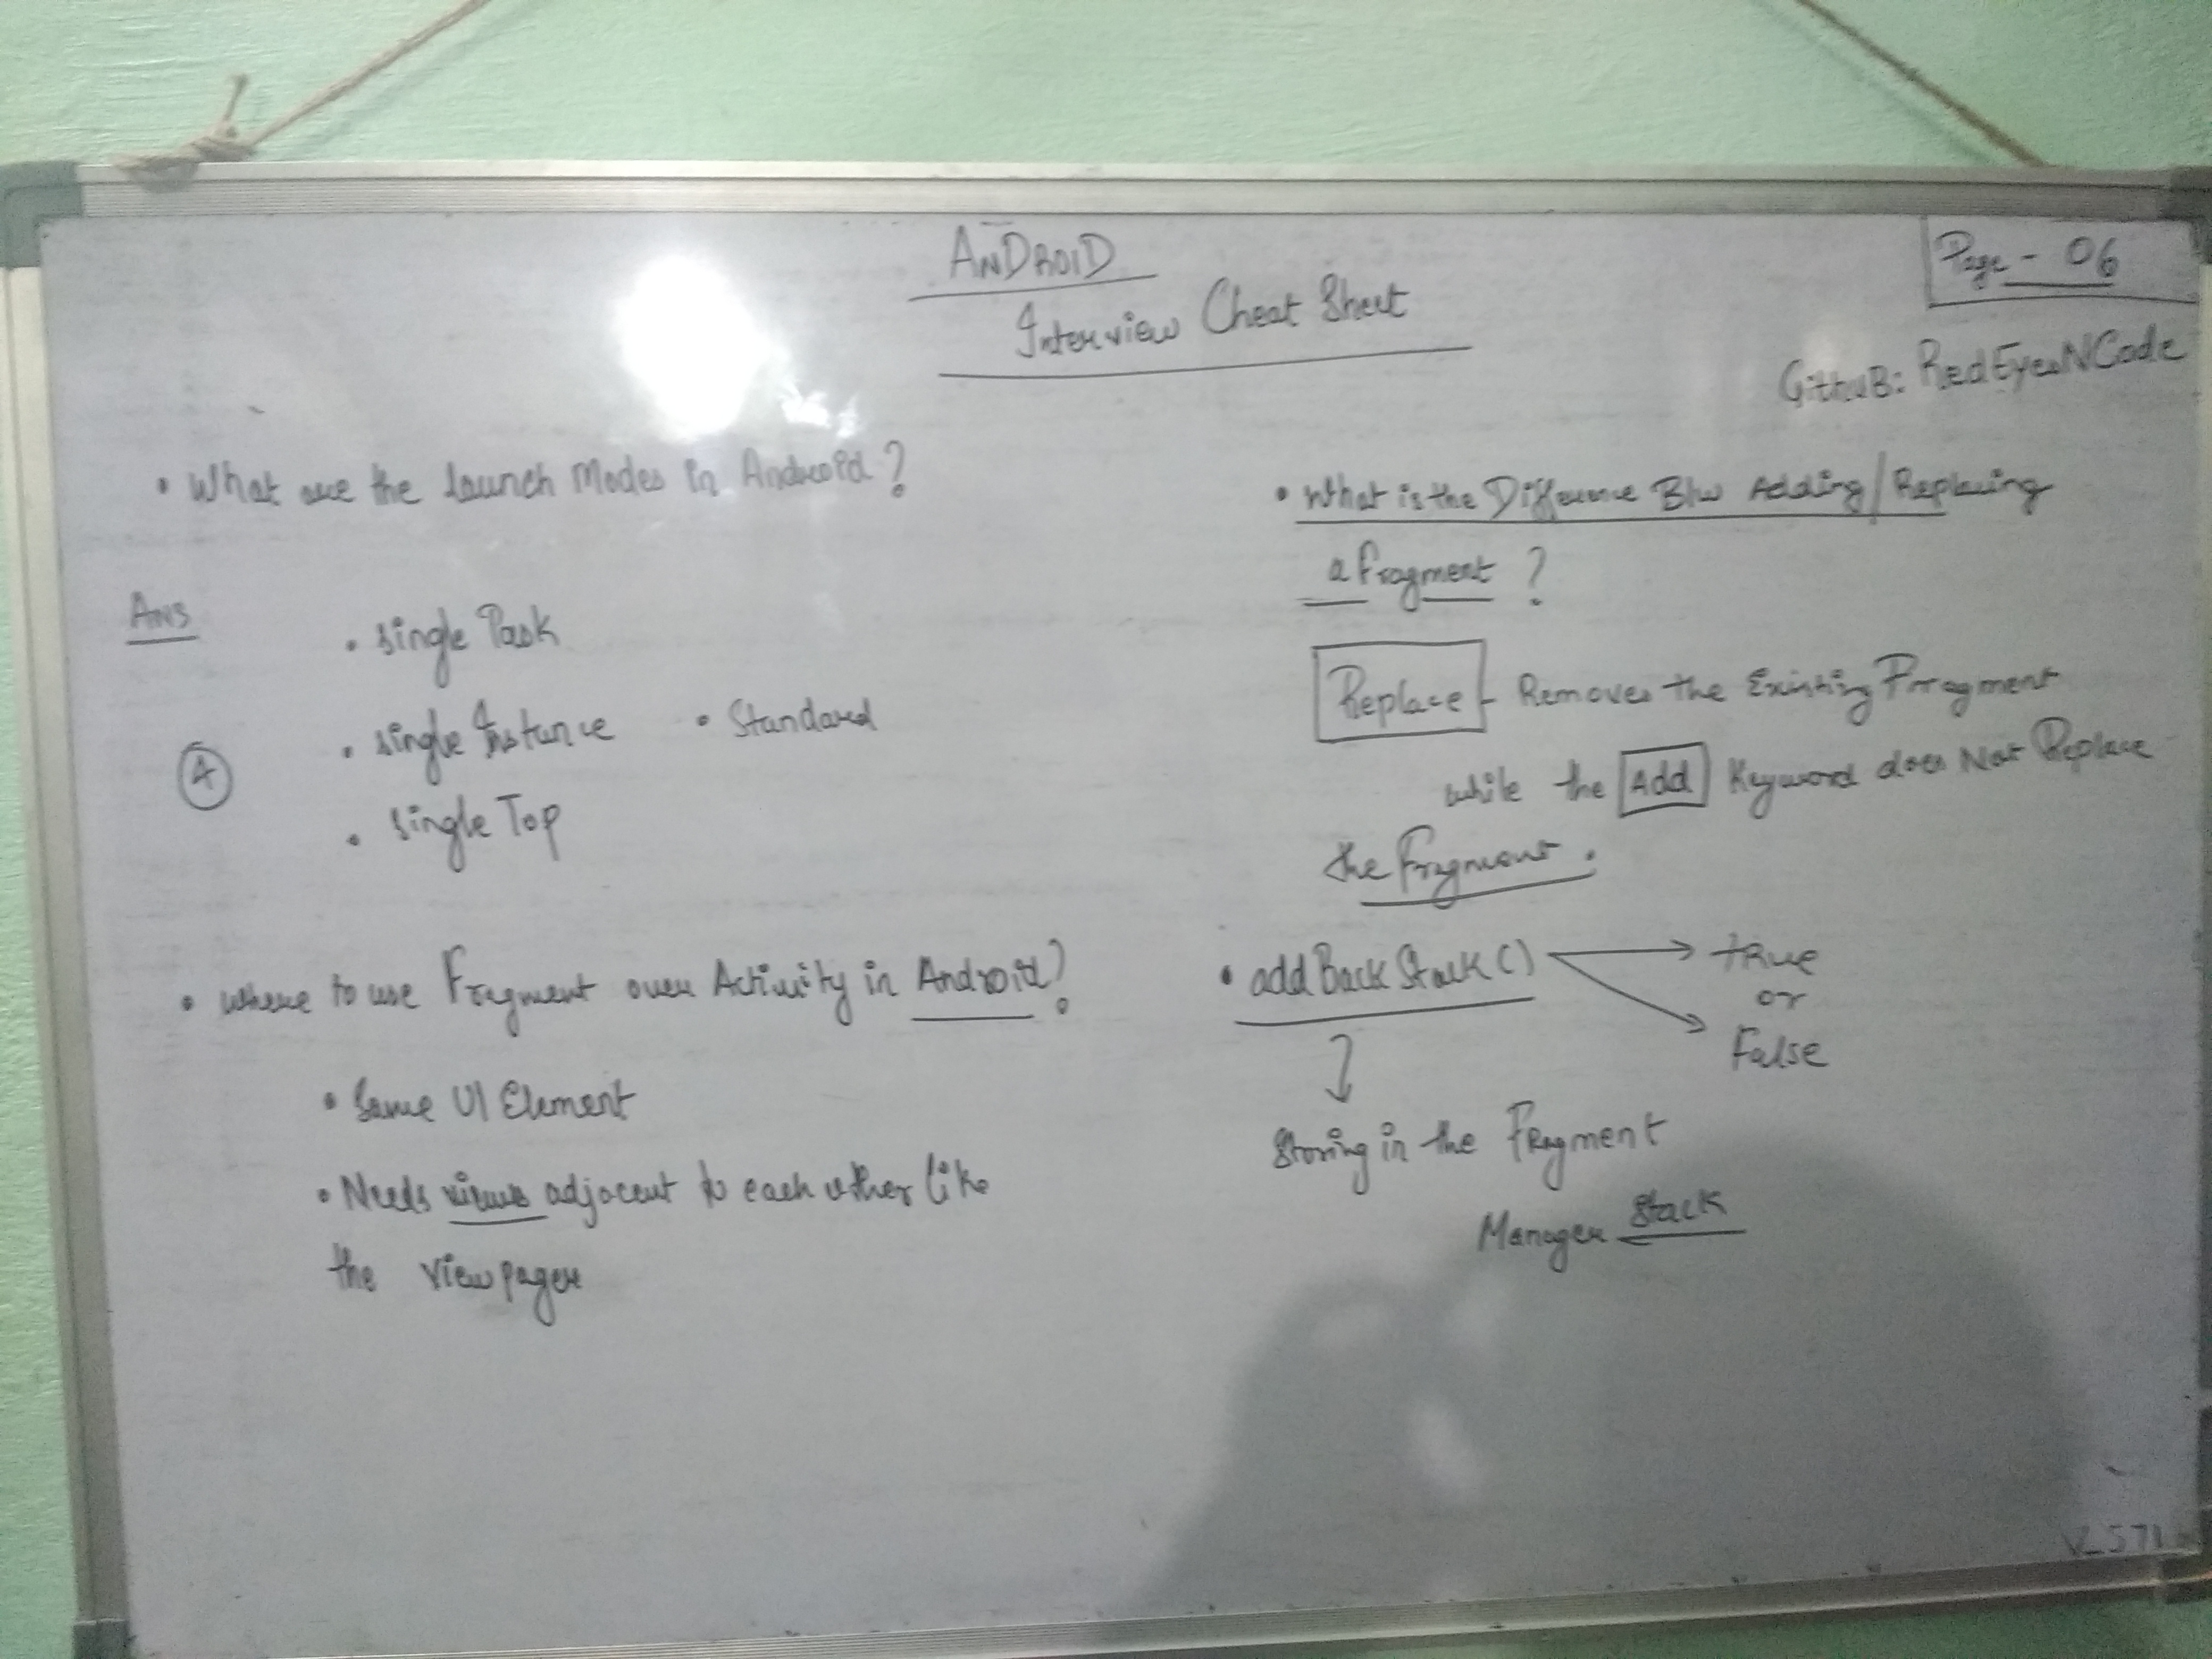 ANDROID
Interview Cheat Sheet
Page - 06
GithuB: RedEyesNCode
• What are the launch Modes in Android?
Ans
• single Task
• single Instance • Standard
4
• single Top
• where to use Fragment over Activity in Android?
• Same UI Element
• Needs views adjacent to each other like
the viewpager
• What is the Difference B/w Adding/Replacing
a fragment ?
Replace - Removes the Existing Fragment
while the Add Keyword does Not Replace
the Fragment.
• addBackStack() → true
or
False
Storing in the Fragment
Manager Stack